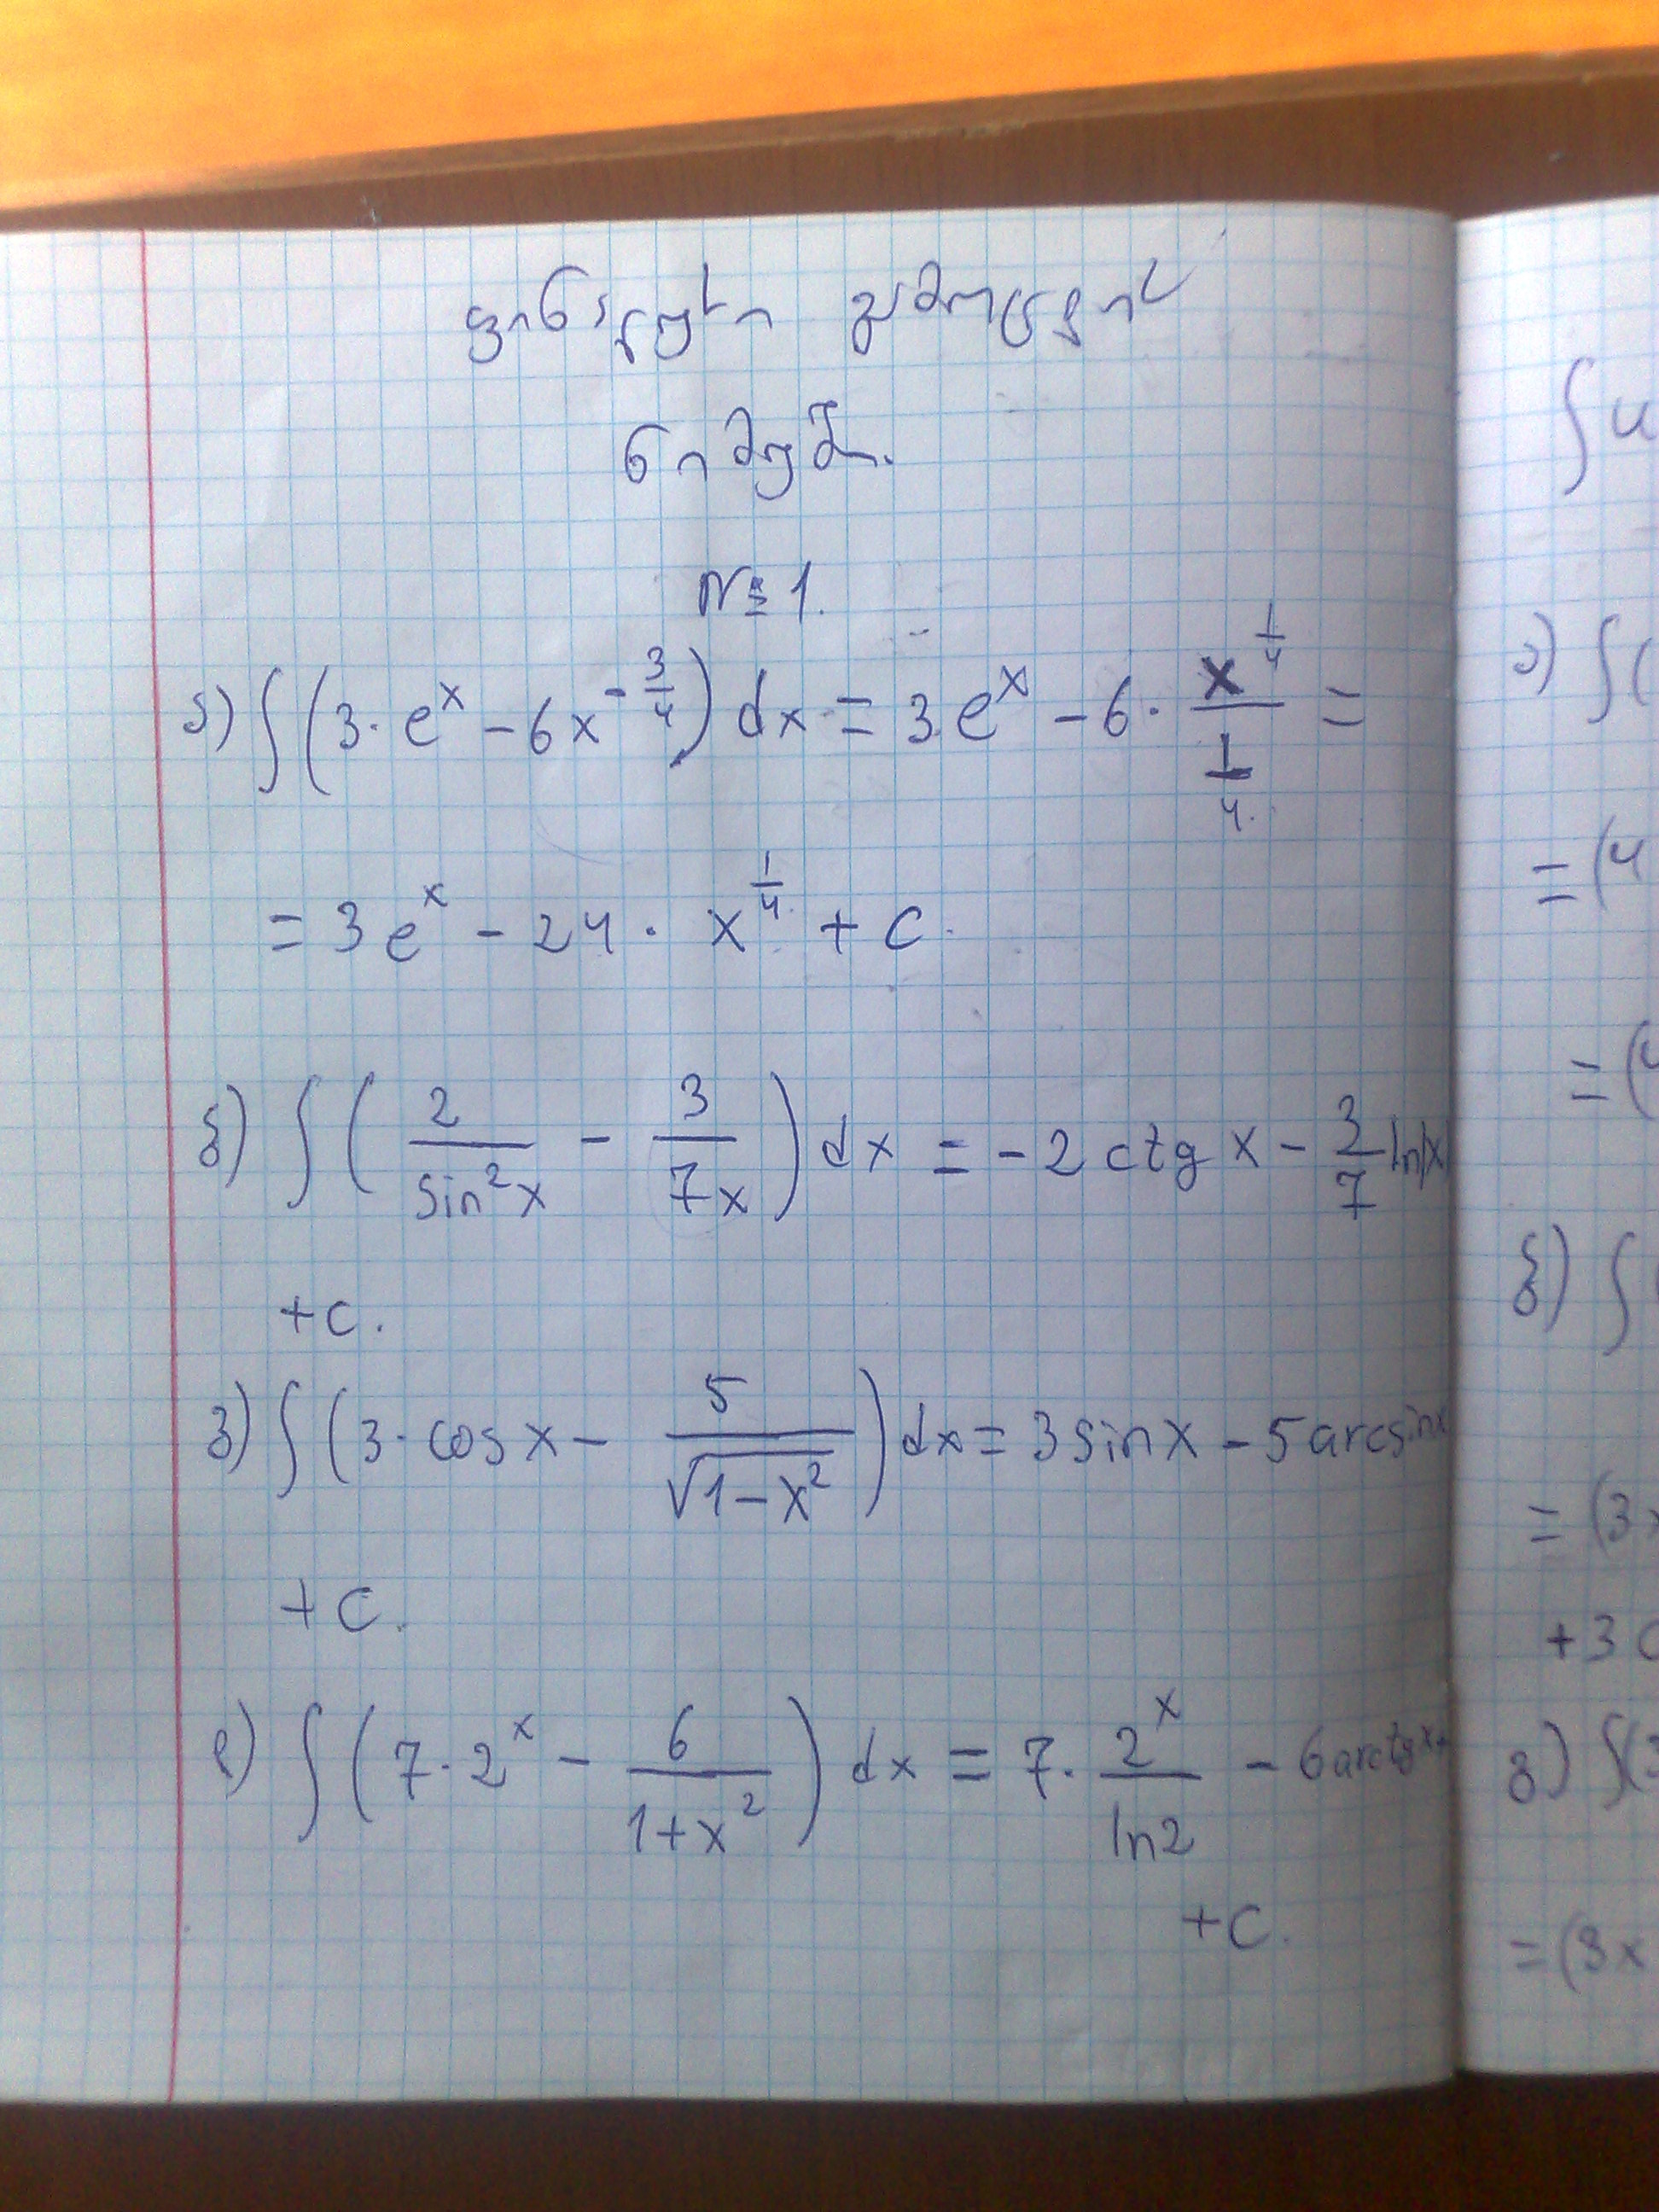 ფინალური გამოცდის
ნიმუში.
№ 1.
ა) ∫(3·eˣ - 6x^(-3/4)) dx = 3eˣ - 6 · x^(1/4) / (1/4) =
= 3eˣ - 24 · x^(1/4) + c.
ბ) ∫(2/sin²x - 3/7x) dx = -2 ctg x - 3/7 ln|x|
+c.
გ) ∫(3·cosx - 5/√(1-x²)) dx = 3sinx - 5arcsinx
+c.
დ) ∫(7·2ˣ - 6/(1+x²)) dx = 7· 2ˣ/ln2 - 6arctgx+
+c.
∫u
ა) ∫(
= (4
= (4
ბ) ∫(
= (3x
+3c
გ) ∫(3
= (3x